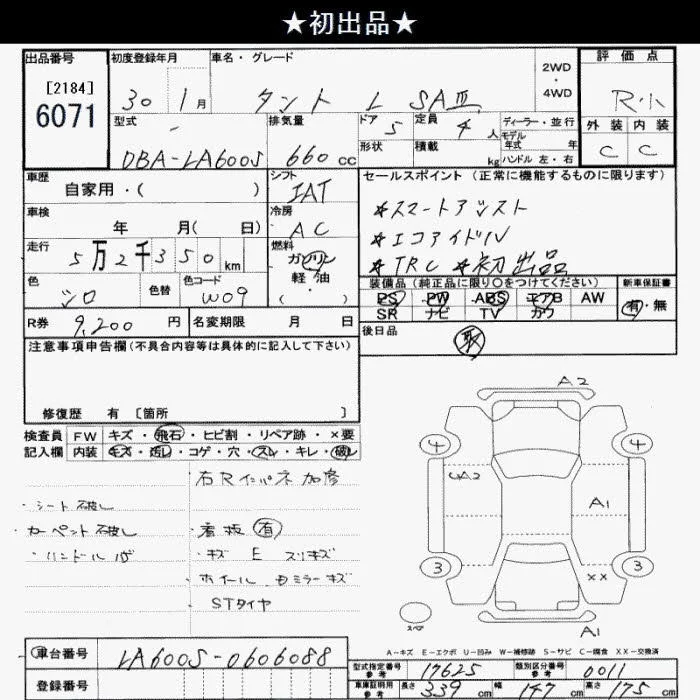 ★初出品★
出品番号 初度登録年月 車名・グレード 2WD・4WD 評価点
[2184] 6071
30 1月 タント L SAⅢ R小
型式 排気量 ドア 5 定員 4人 ディーラー・並行 外装 内装
モデル年式 年
DBA-LA600S 660cc 形状 積載 kg ハンドル 左・右 C C
車歴 シフト セールスポイント(正常に機能するものに限ります)
自家用・( ) IAT
車検 冷房 ☆スマートアシスト
年 月( 日) AC ☆エコアイドル
走行 燃料 ☆TRC ☆初出品
5万2千350km ガソリン
軽・油
・( )
色 色替 色コード 装備品(純正品に限り○をつけてください) 新車保証書
シロ W09 PS PW ABS エアB AW 有・無
SR ナビ TV カワ
R券 9,200円 名変期限 月 日 後日品
取
注意事項申告欄(不具合内容等は具体的に記入して下さい)
修復歴 有 [箇所 ]
検査員 FW キズ・飛石・ヒビ割・リペア跡・×要
記入欄 内装 キズ・汚レ・コゲ・穴・スレ・キレ・破レ
右Rインパネ加修
・シート破レ
・カーペット破レ ・看板 有
・ハンドル ・キズ E スリキズ
ホイール ミラーキズ
STタイヤ
A2
4 4
UA2 A1
3 3
XX
スペア
A1
A-キズ E-エクボ U-凹み W-補修跡 S-サビ C-腐食 XX-交換済
車台番号 LA600S-0606088
型式指定番号 参考 17625 類別区分番号 参考 0011
登録番号
車庫証明用 参考 長さ 339cm 幅 147cm 高さ 175cm